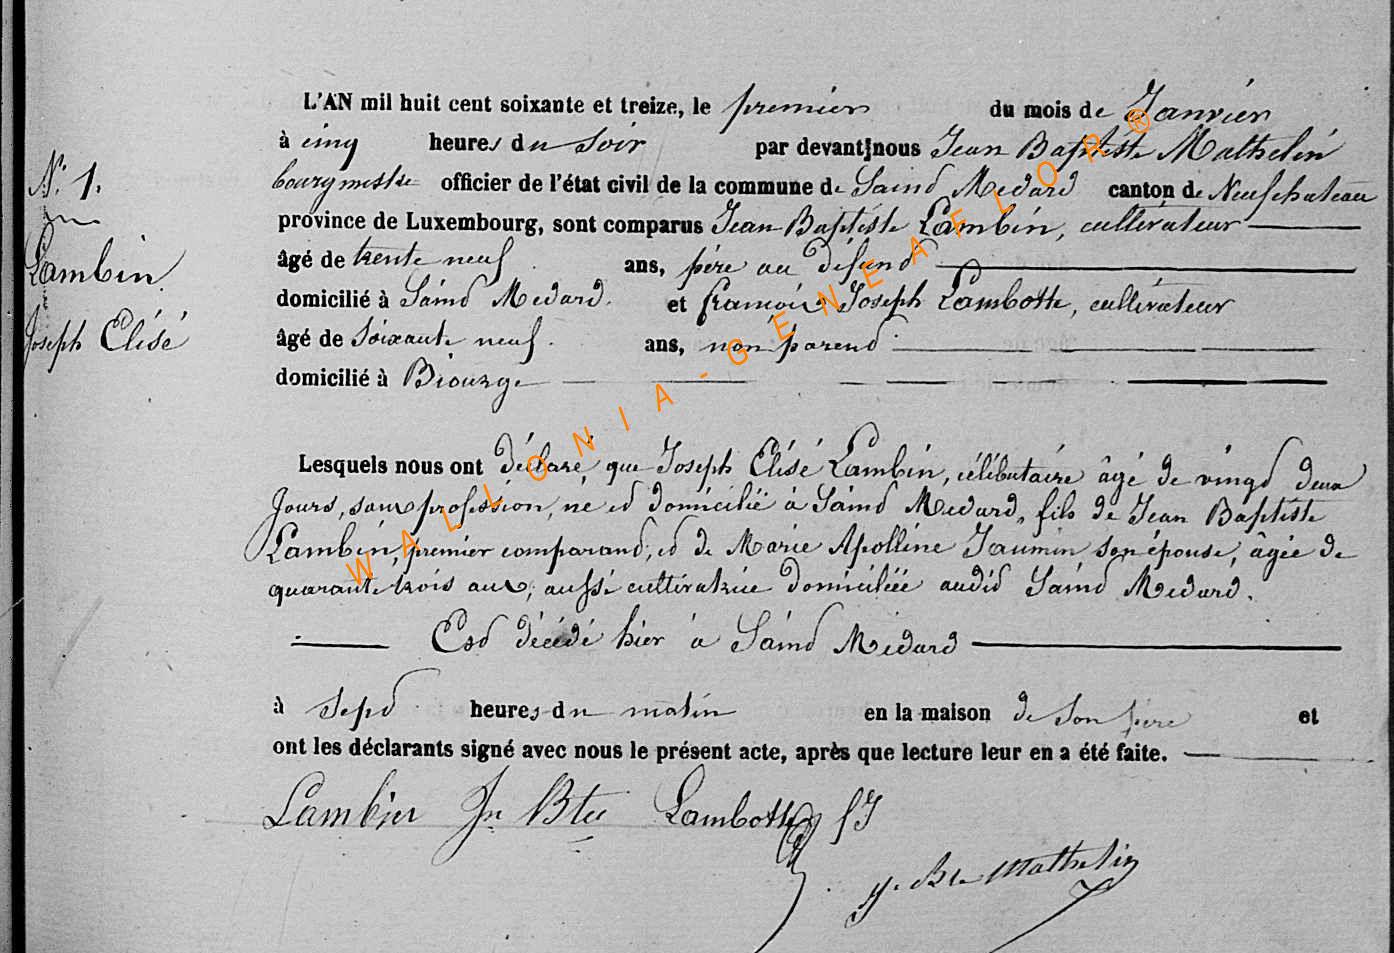 L'AN mil huit cent soixante et treize, le premier du mois de Janvier
à cinq heures du soir par devant nous Jean Baptiste Mathelin
N.° 1. bourgmestre officier de l'état civil de la commune de Saind Medard canton de Neufchateau
province de Luxembourg, sont comparus Jean Baptiste Lambin, cultivateur
Lambin âgé de trente neuf ans, père au défund
domicilié à Saind Medard. et françois Joseph Lambotte, cultivateur
Joseph Elisé âgé de soixante neuf ans, non parend
domicilié à Biourge
Lesquels nous ont déclaré que Joseph Elisé Lambin, célibataire âgé de vingd deux
Jours, sans profession, né ed domicilié à Saind Medard, fils de Jean Baptiste
Lambin, premier comparand, ed de Marie Apolline Jaumin son épouse, âgée de
quarante trois ans, aussi cultivatrice domiciliée audid Saind Medard.
Esd décédé hier à Saind Médard
à sepd heures du matin en la maison de son père et
ont les déclarants signé avec nous le présent acte, après que lecture leur en a été faite.
Lambin Jn Bte Lambotte fJ
J. Bte Mathelin
WALLONIA-GENEAFLOR®